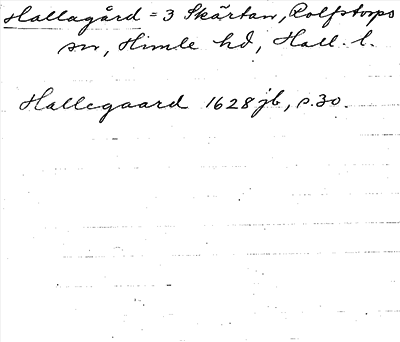 Hallagård = 3 Skärtan, Rolfstorps
sn, Himle hd, Hall. l.
Hallegaard 1628 jb, s. 30.